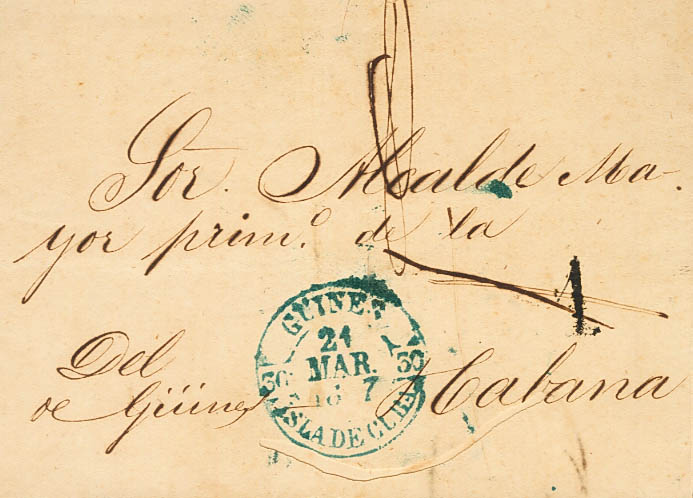 Sor. Alcalde Ma-
yor prim.º de la
1
Del
de Güines
Habana
GÜINES
21
MAR.
30 30
7
ISLA DE CUBA